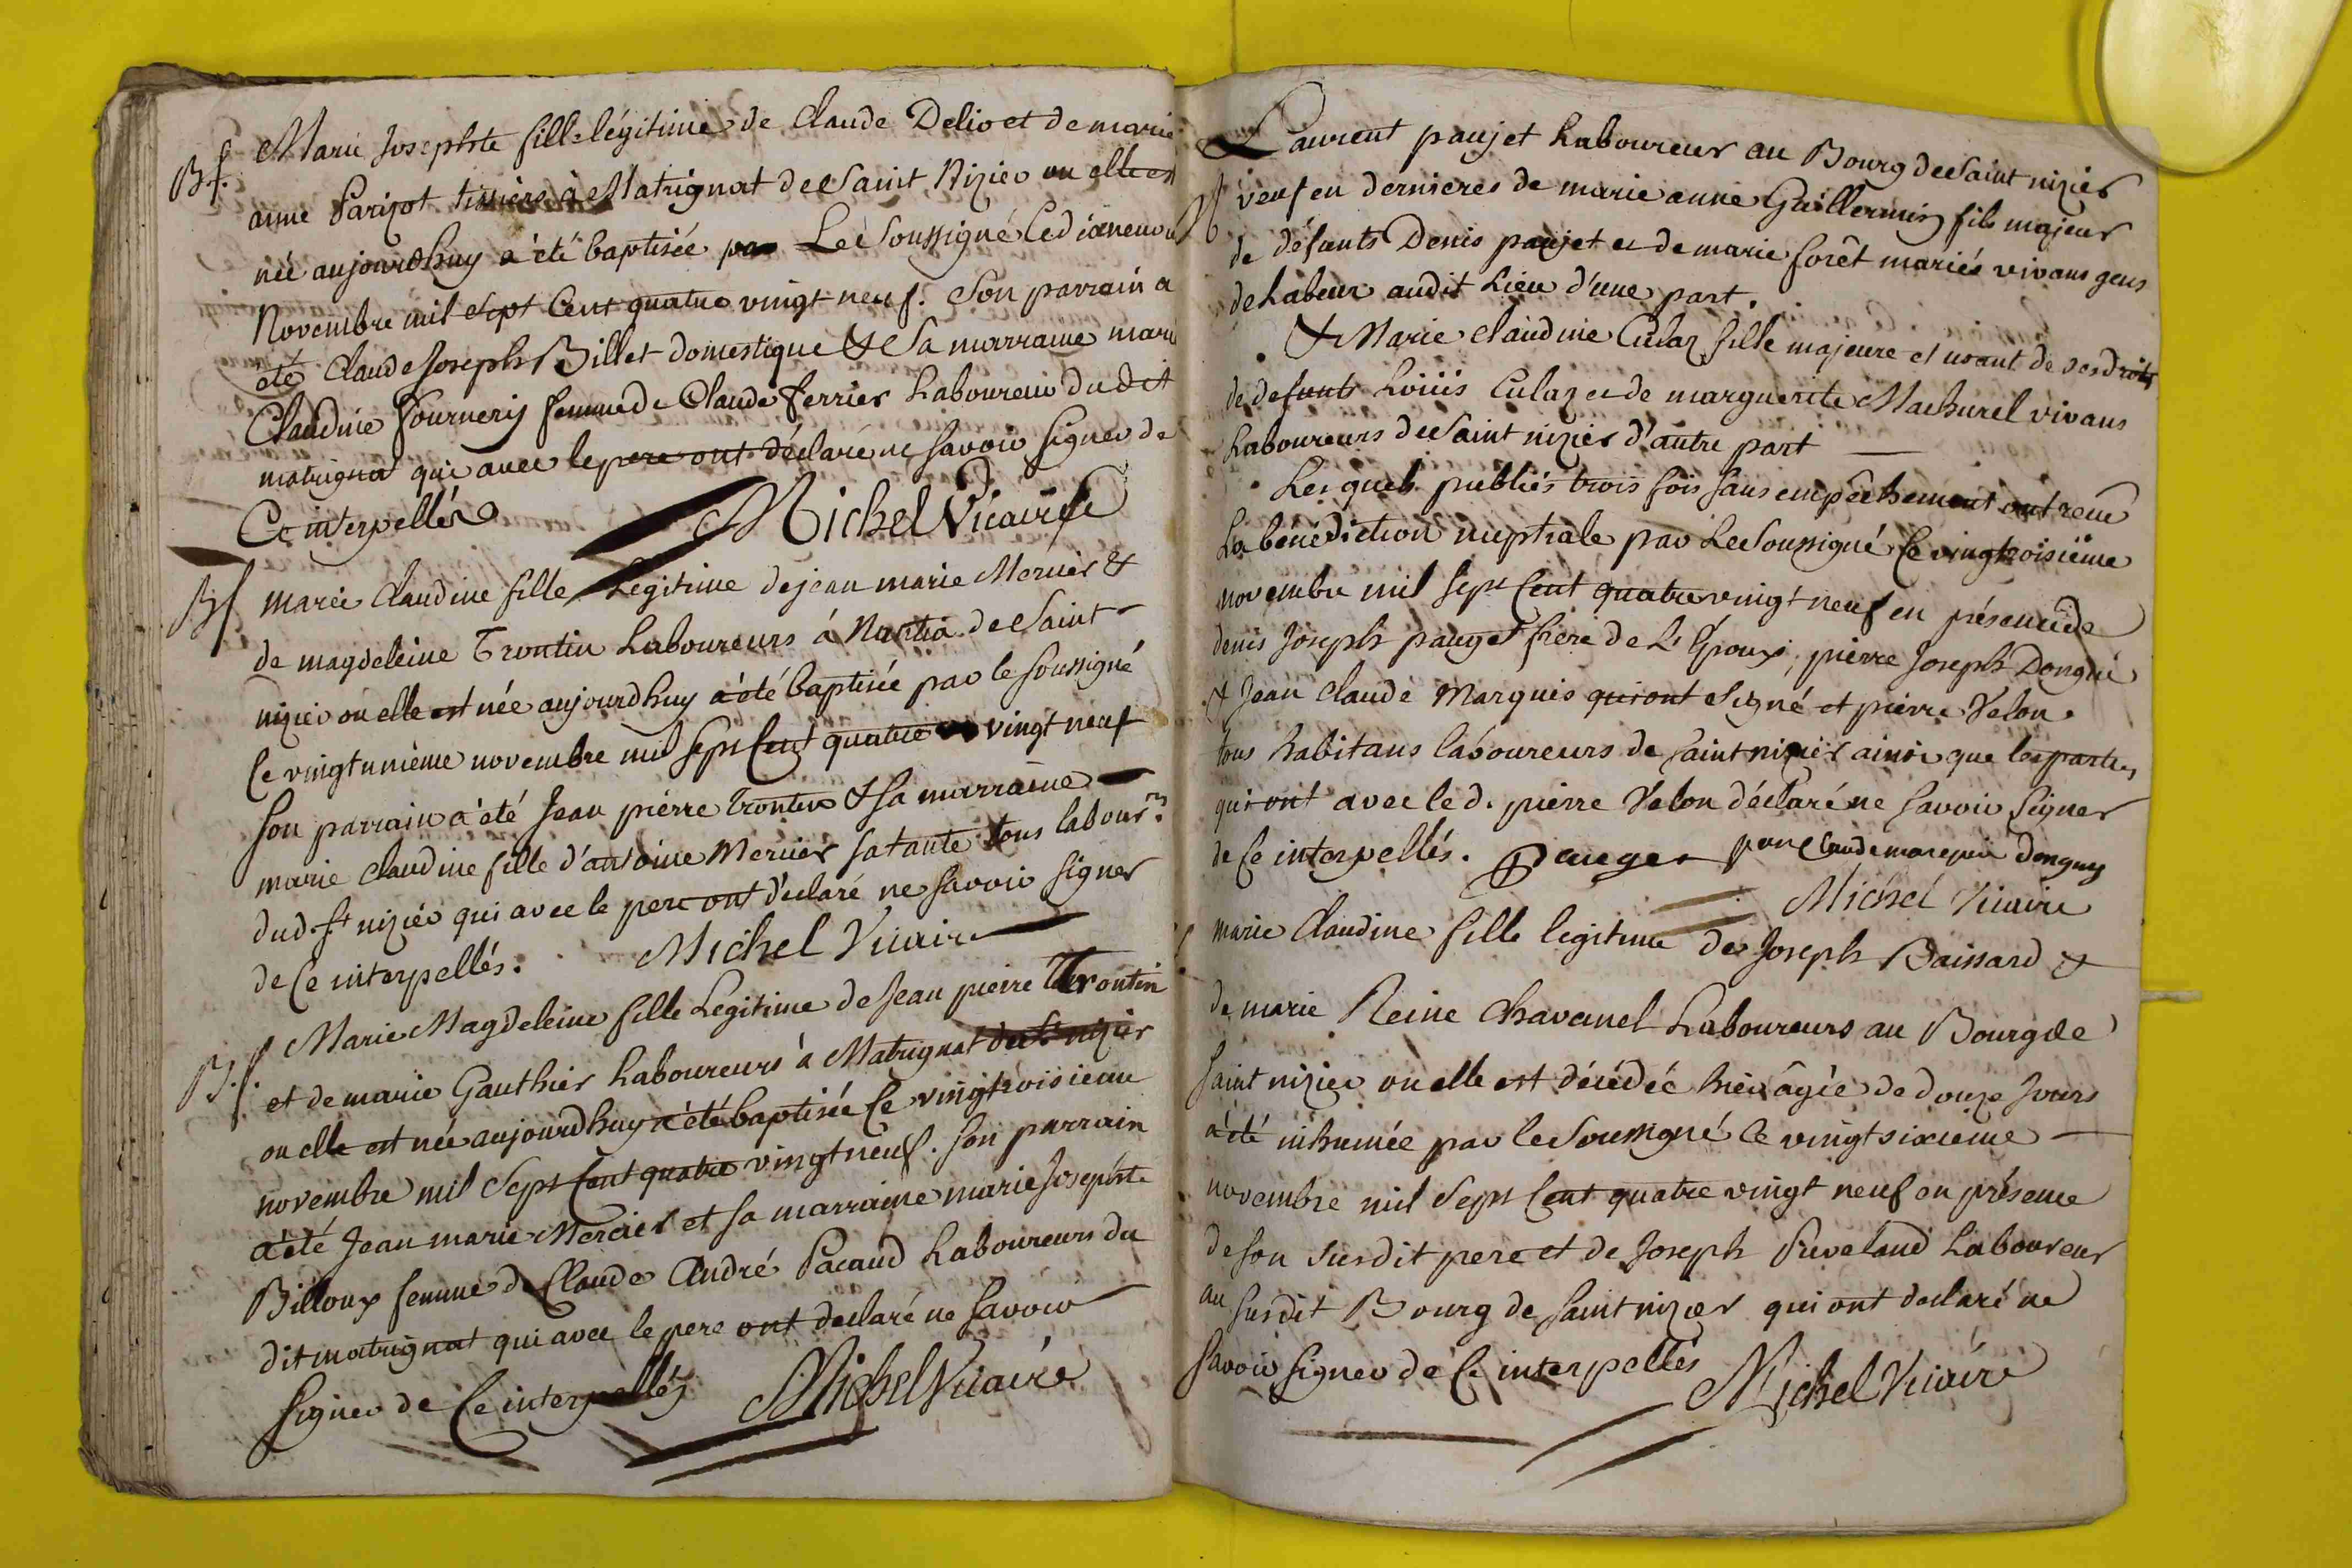 B f.
Marie Josephte fille légitime de Claude Delio et de marie
anne Parizot tissiers à Matrignat de Saint Nizier ou elle est
née aujourdhuy a été baptisée par Le Soussigné Ce dixneuv
Novembre mil Sept Cent quatre vingt neuf. Son parrain a
été Claude Joseph Billet domestique & Sa marraine mari
Claudine fournery femme de Claude ferrier Laboureur du dit
matrignat qui avec le pere ont déclaré ne savoir signer de
Ce interpellés
Michel Vicaire
Bf
marie Claudine fille Legitime de jean marie Mercier &
de magdeleine Trontin Laboureurs á de Saint
nizier ou elle est née aujourdhuy a été baptisée par le soussigné
Ce vingtunième novembre mil Sept Cent quatre vingt neuf
Son parrain a été Jean pierre trontin & sa marraine
marie Claudine fille d'antoine Mercier sa tante tous labour.rs
dud St nizier qui avec le pere ont déclaré ne savoir signer
de Ce interpellés.
Michel Vicaire
B.f.
Marie Magdeleine fille Legitime de Jean pierre Trontin
et de marie Gauthier Laboureurs à Matrignat de St nizier
ou elle est née aujourdhuy a été baptisée Ce vingtroisieme
novembre mil Sept Cent quatre vingt neuf. Son parrain
a été Jean marie Mercier et sa marraine marie Josephte
Billoux femme de Claude André Pacaud Laboureurs du
dit matrignat qui avec le pere ont declaré ne savoir
Signer de Ce interpellés
Michel Vicaire
Laurent paujet Laboureur au Bourg de Saint nizier
M veuf en dernieres de marie anne Guillermin fils majeur
de défunts Denis paujet et de marie forêt mariés vivans gens
de Labeur audit Lieu d'une part.
& Marie claudine Culaz fille majeure et usant de ses droits
de defunts Loüis Culaz et de marguerite Machurel vivans
Laboureurs de Saint nizier d'autre part
Lesquels publiés trois fois sans empêchement ont reçu
La bénédiction nuptiale par Le Soussigné Ce vingtroisième
novembre mil Sept Cent quatre vingt neuf en présence de
denis Joseph pauget frere de L'Epoux, pierre Joseph Dongui
& Jean Claude Marquis qui ont Signé et pierre Velon
tous habitans laboureurs de saint nizier ainsi que les parties
qui ont avec le d. pierre Velon déclaré ne savoir signer
de Ce interpellés. Pauget Donguy
Michel Vicaire
marie Claudine fille legitime de Joseph Baissard &
de marie Reine Chavanel Laboureurs au Bourg de
Saint nizier ou elle est décédée hier âgée de douze Jours
a été inhumée par le Soussigné Ce vingtsixieme
novembre mil Sept Cent quatre vingt neuf en présence
de son Susdit pere et de Joseph Laboureur
au susdit Bourg de Saint nizier qui ont declaré ne
savoir signer de Ce interpellés
Michel Vicaire